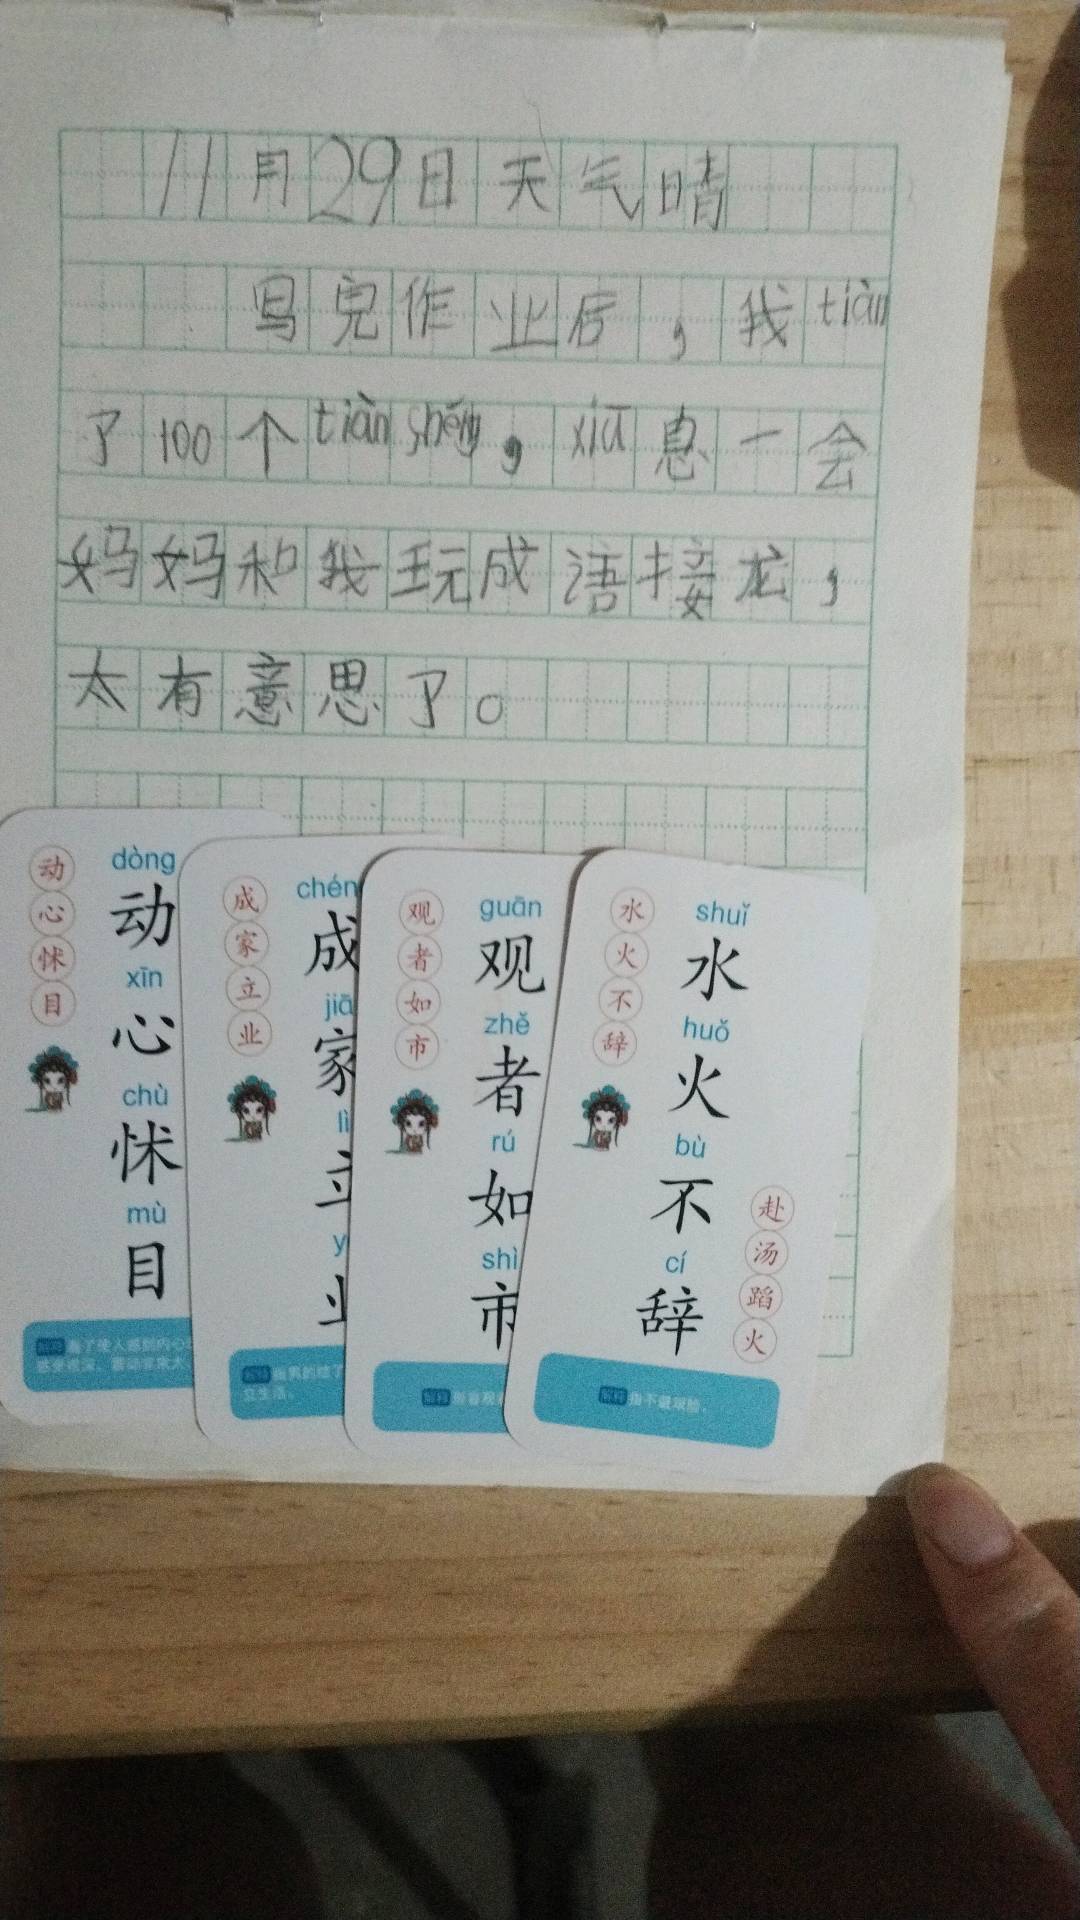 11月29日天气晴
写完作业后，我tiàn
了100个tiàn shěng，xiā息一会
妈妈和我玩成语接龙，
太有意思了。
动心怵目
dòng
动
xīn
心
chù
怵
mù
目
成家立业
chén
成
jiā
家
lì
立
y
业
观者如市
guān
观
zhě
者
rú
如
shì
市
水火不辞
shuǐ
水
huǒ
火
bù
不
cí
辞
赴汤蹈火
指不避艰险。